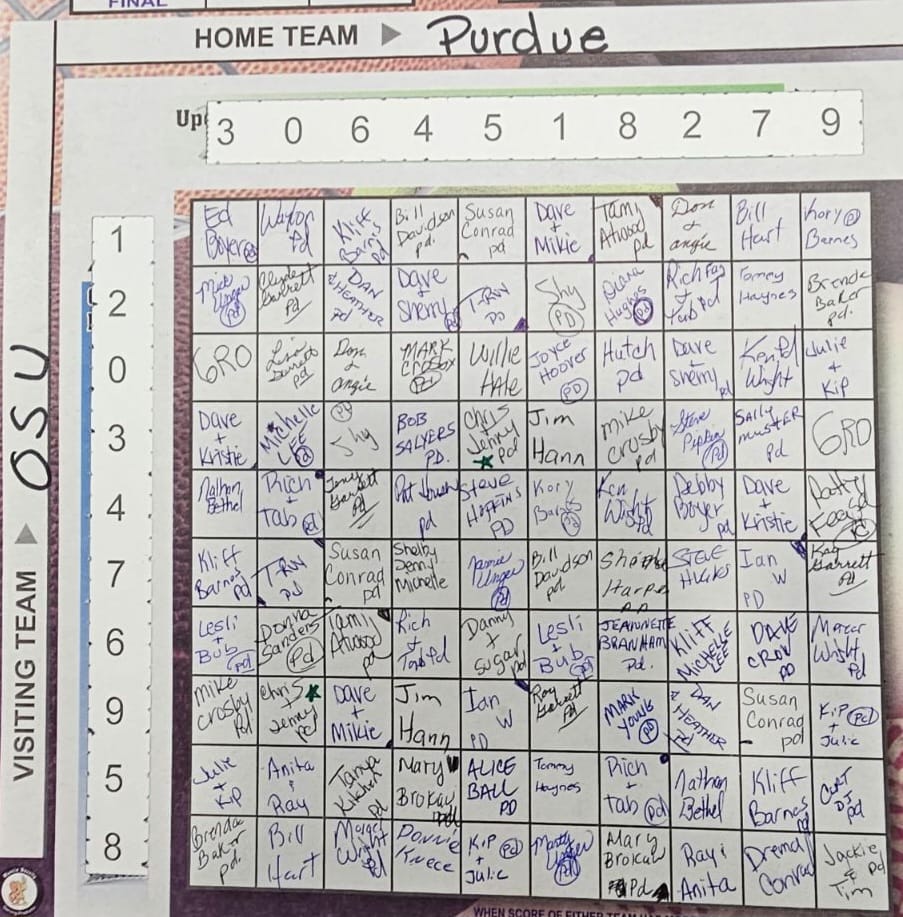 FINAL
HOME TEAM ▶ Purdue
3 0 6 4 5 1 8 2 7 9
VISITING TEAM ▶ OSU
1
Ed Boyer pd
Waylon pd
Kliff Barnes pd
Bill Davidson pd.
Susan Conrad pd
Dave + Mikie
Tami Atwood pd
Don & angie
Bill Hart
Kory @ Barnes
2
Mick Unger Pd
Clyde Garrett Pd
DAN & HEATHER Pd
Dave + Sherry pd
T-RW PD
Shy PD
Diana Hughes Pd
Rich + Tab pd
Tommy Haynes
Brenda Baker pd.
0
GRO
Lisa Garrett pd
Don & angie
MARK CROSBY Pd
Willie HALE
Joyce Hoover PD
Hutch pd
Dave + Sherry pd
Ken Wight Pd
Julie + Kip
3
Dave + Kristie
Michelle LEE pd
Pd Shy
BOB SALYERS PD.
Chris + Jenny pd
Jim Hann
mike Crosby pd
Steve Pipkin Pd
SALLY MUSTER Pd
GRO
4
Nathan Bethel
Rich + Tab pd
Garrett Pd
pd
Steve HOPKINS PD
Kory Barnes Pd
Ken Wight Pd
Debby Boyer pd
Dave + Kristie
Patty
7
Kliff Barnes pd
T-RW PD
Susan Conrad pd
Shelby Jenny Michelle
Jamie Unger Pd
Bill Davidson pd
Harpe
STEVE
Ian W PD
Kay Garrett Pd
6
Lesli + Bub pd
Donna Sanders Pd
Tami Atwood pd
Rich + Tab Pd
Danny + Sugar pd
Lesli + Bub pd
JEANNETTE BRANHAM Pd.
Kliff MICHELLE LEE
DAVE CROW PD
Wight Pd
9
mike Crosby Pd
Chris + Jenny pd
Dave + Mikie
Jim Hann
Ian W PD
Ray Garrett Pd
MARK YOUNG PD
& DAN HEATHER Pd
Susan Conrad pd
KiP Pd + Julie
5
Julie + Kip
Anita & Ray
Tanya Kitchen pd
Mary Brokaw
ALICE BALL PD
Tommy Haynes
Rich + tab pd
Nathan Bethel
Kliff Barnes pd
CURT DJ pd
8
Brenda Baker pd.
Bill Hart
Wight Pd
DONNIE Knece
KiP Pd + Julie
Marty Unger Pd
Mary Brokaw Pd
Ray & Anita
Drema Conrad
Jackie & Tim pd